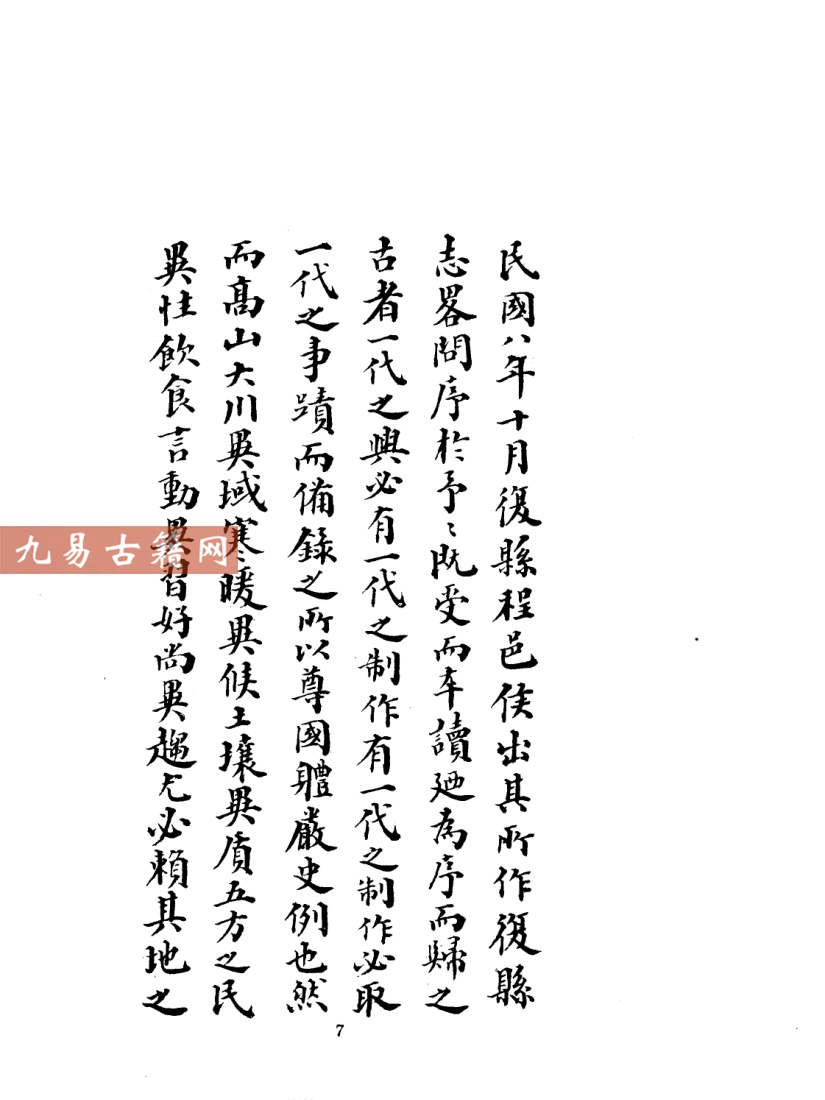 民國八年十月復縣程邑侯出其所作復縣
志畧問序於予〻既受而卒讀廼為序而歸之
古者一代之興必有一代之制作有一代之制作必取
一代之事蹟而備錄之所以尊國體嚴史例也然
而髙山大川異域寒暖異候土壤異质五方之民
異性飲食言動異習好尚異趨尤必賴其地之
九易古籍网
7